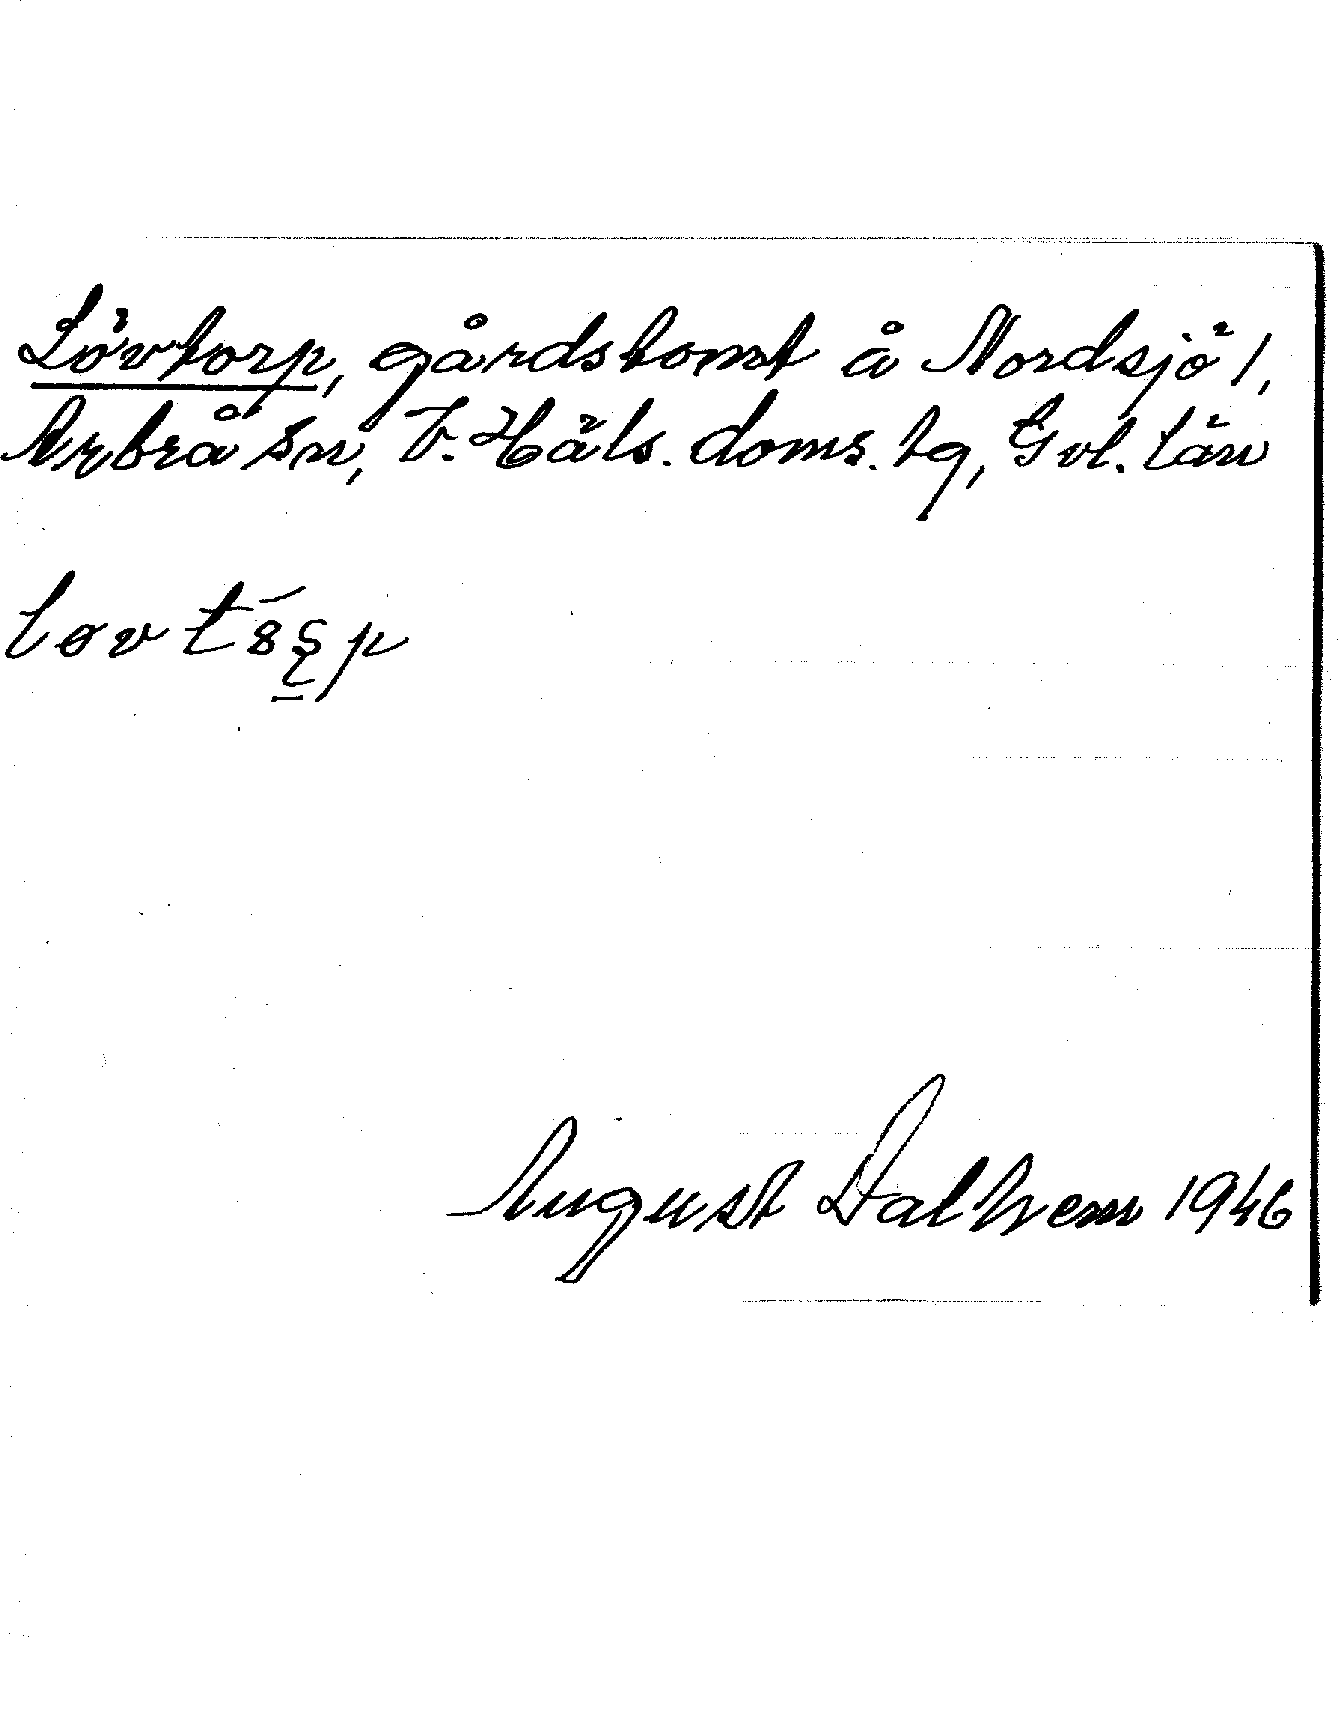 Lövtorp, gårdstomt å Nordsjö 1,
Arbrå sn, V. Häls. doms. hg, Gvl. län
August Dalhem 1946